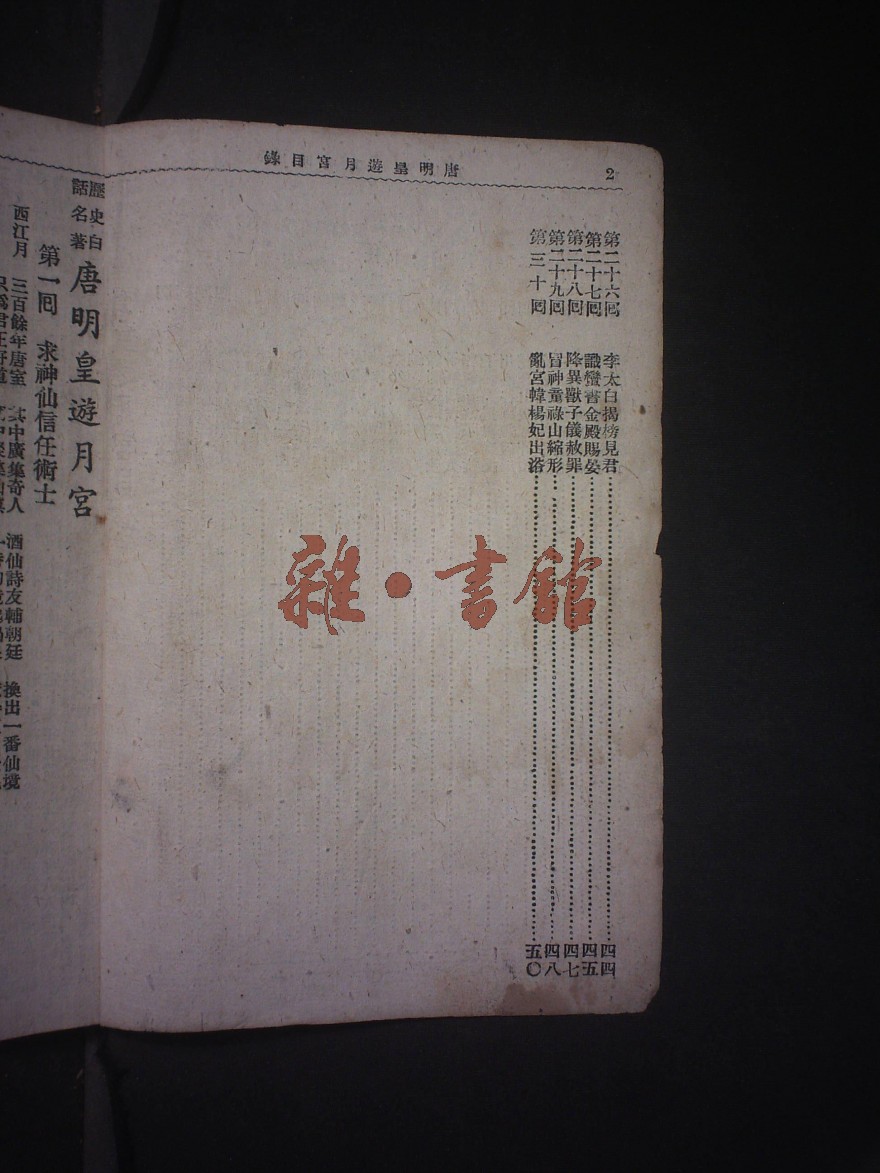 唐明皇遊月宮目錄
2
第二十六囘 李太白揭榜見君 四四
第二十七囘 識蠻書金殿賜晏 四五
第二十八囘 降異獸子儀赦罪 四七
第二十九囘 冒神童祿山縮形 四八
第三十囘 亂宮幃楊妃出浴 五〇
雜·書館
歷史白話名著
唐明皇遊月宮
第一囘 求神仙信任術士
西江月 三百餘年唐室 其中廣集奇人 酒仙詩友輔朝廷 換出一番仙境